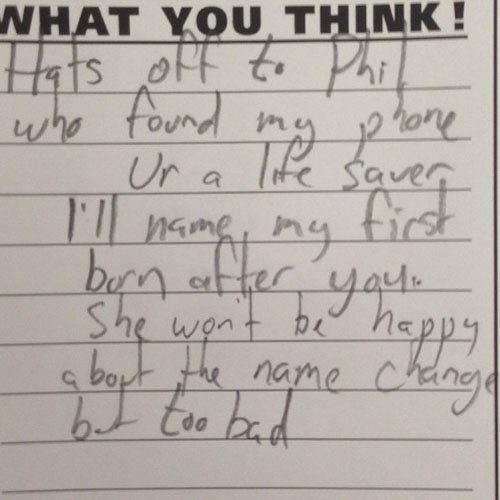 WHAT YOU THINK!
Hats off to Phil
who found my phone
Ur a life saver
I'll name my first
born after you..
She won't be happy
about the name change
but too bad